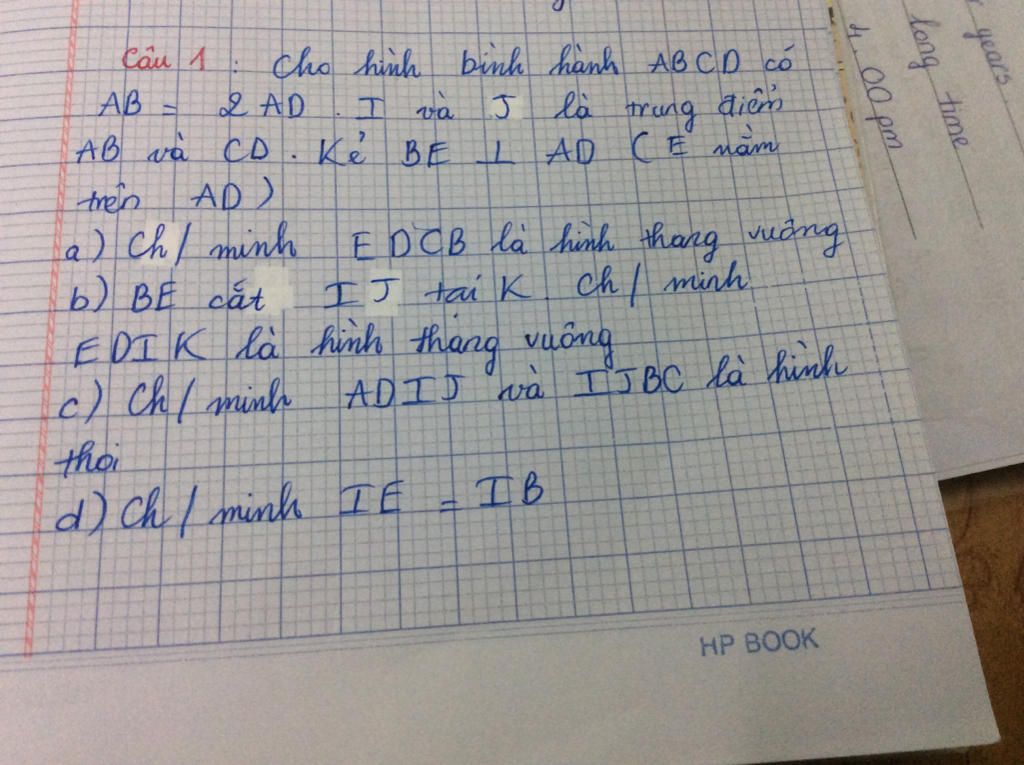 Câu 1 : Cho hình bình hành ABCD có
AB = 2 AD . I và J là trung điểm
AB và CD . Kẻ BE ⊥ AD ( E nằm
trên AD )
a) Ch / minh EDCB là hình thang vuông
b) BE cắt IJ tại K . Ch / minh
EDIK là hình thang vuông
c) Ch / minh ADIJ và IJBC là hình
thoi
d) Ch / minh IE = IB
HP BOOK
years
long time
4. 00 pm